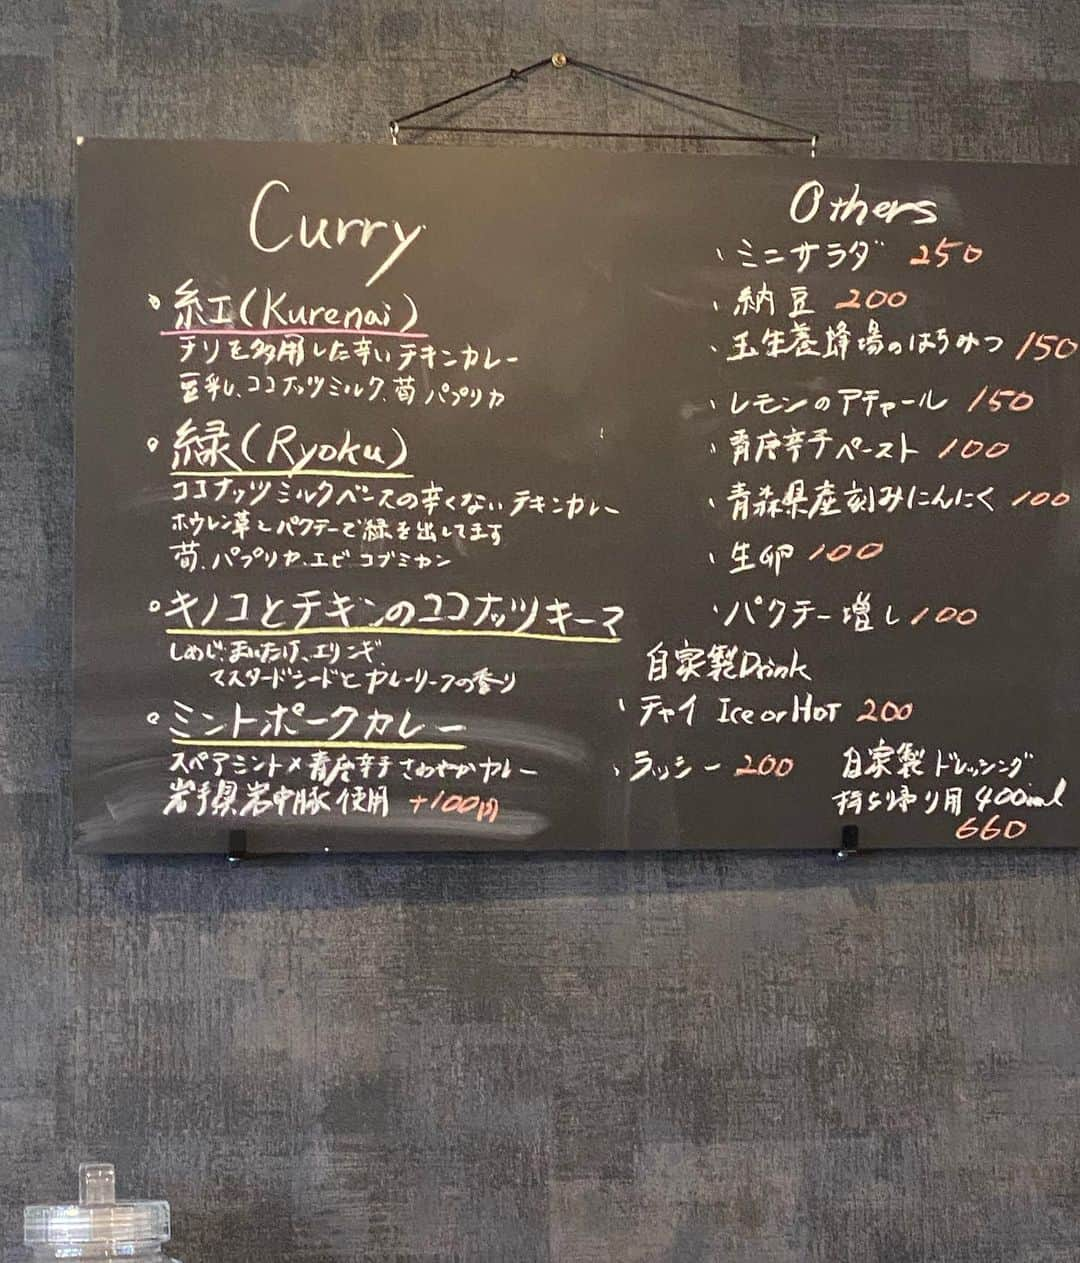 Curry
・紅(Kurenai)
チリを多用した辛いチキンカレー
豆乳、ココナッツミルク、筍 パプリカ
・緑(Ryoku)
ココナッツミルクベースの辛くない チキンカレー
ホウレン草とパクチーで緑を出してます
筍、パプリカ、エビ コブミカン
・キノコとチキンのココナッツキーマ
しめじ、まいたけ、エリンギ
マスタードシードとカレーリーフの香り
・ミントポークカレー
スペアミント×青唐辛子 さわやかカレー
岩手県岩中豚使用 +100円
Others
・ミニサラダ 250
・納豆 200
・玉生養蜂場のはちみつ 150
・レモンのアチャール 150
・青唐辛子ペースト 100
・青森県産刻みにんにく 100
・生卵 100
・パクチー増し 100
自家製Drink
・チャイ Ice or HOT 200
・ラッシー 200
自家製ドレッシング
持ち帰り用 400ml
660